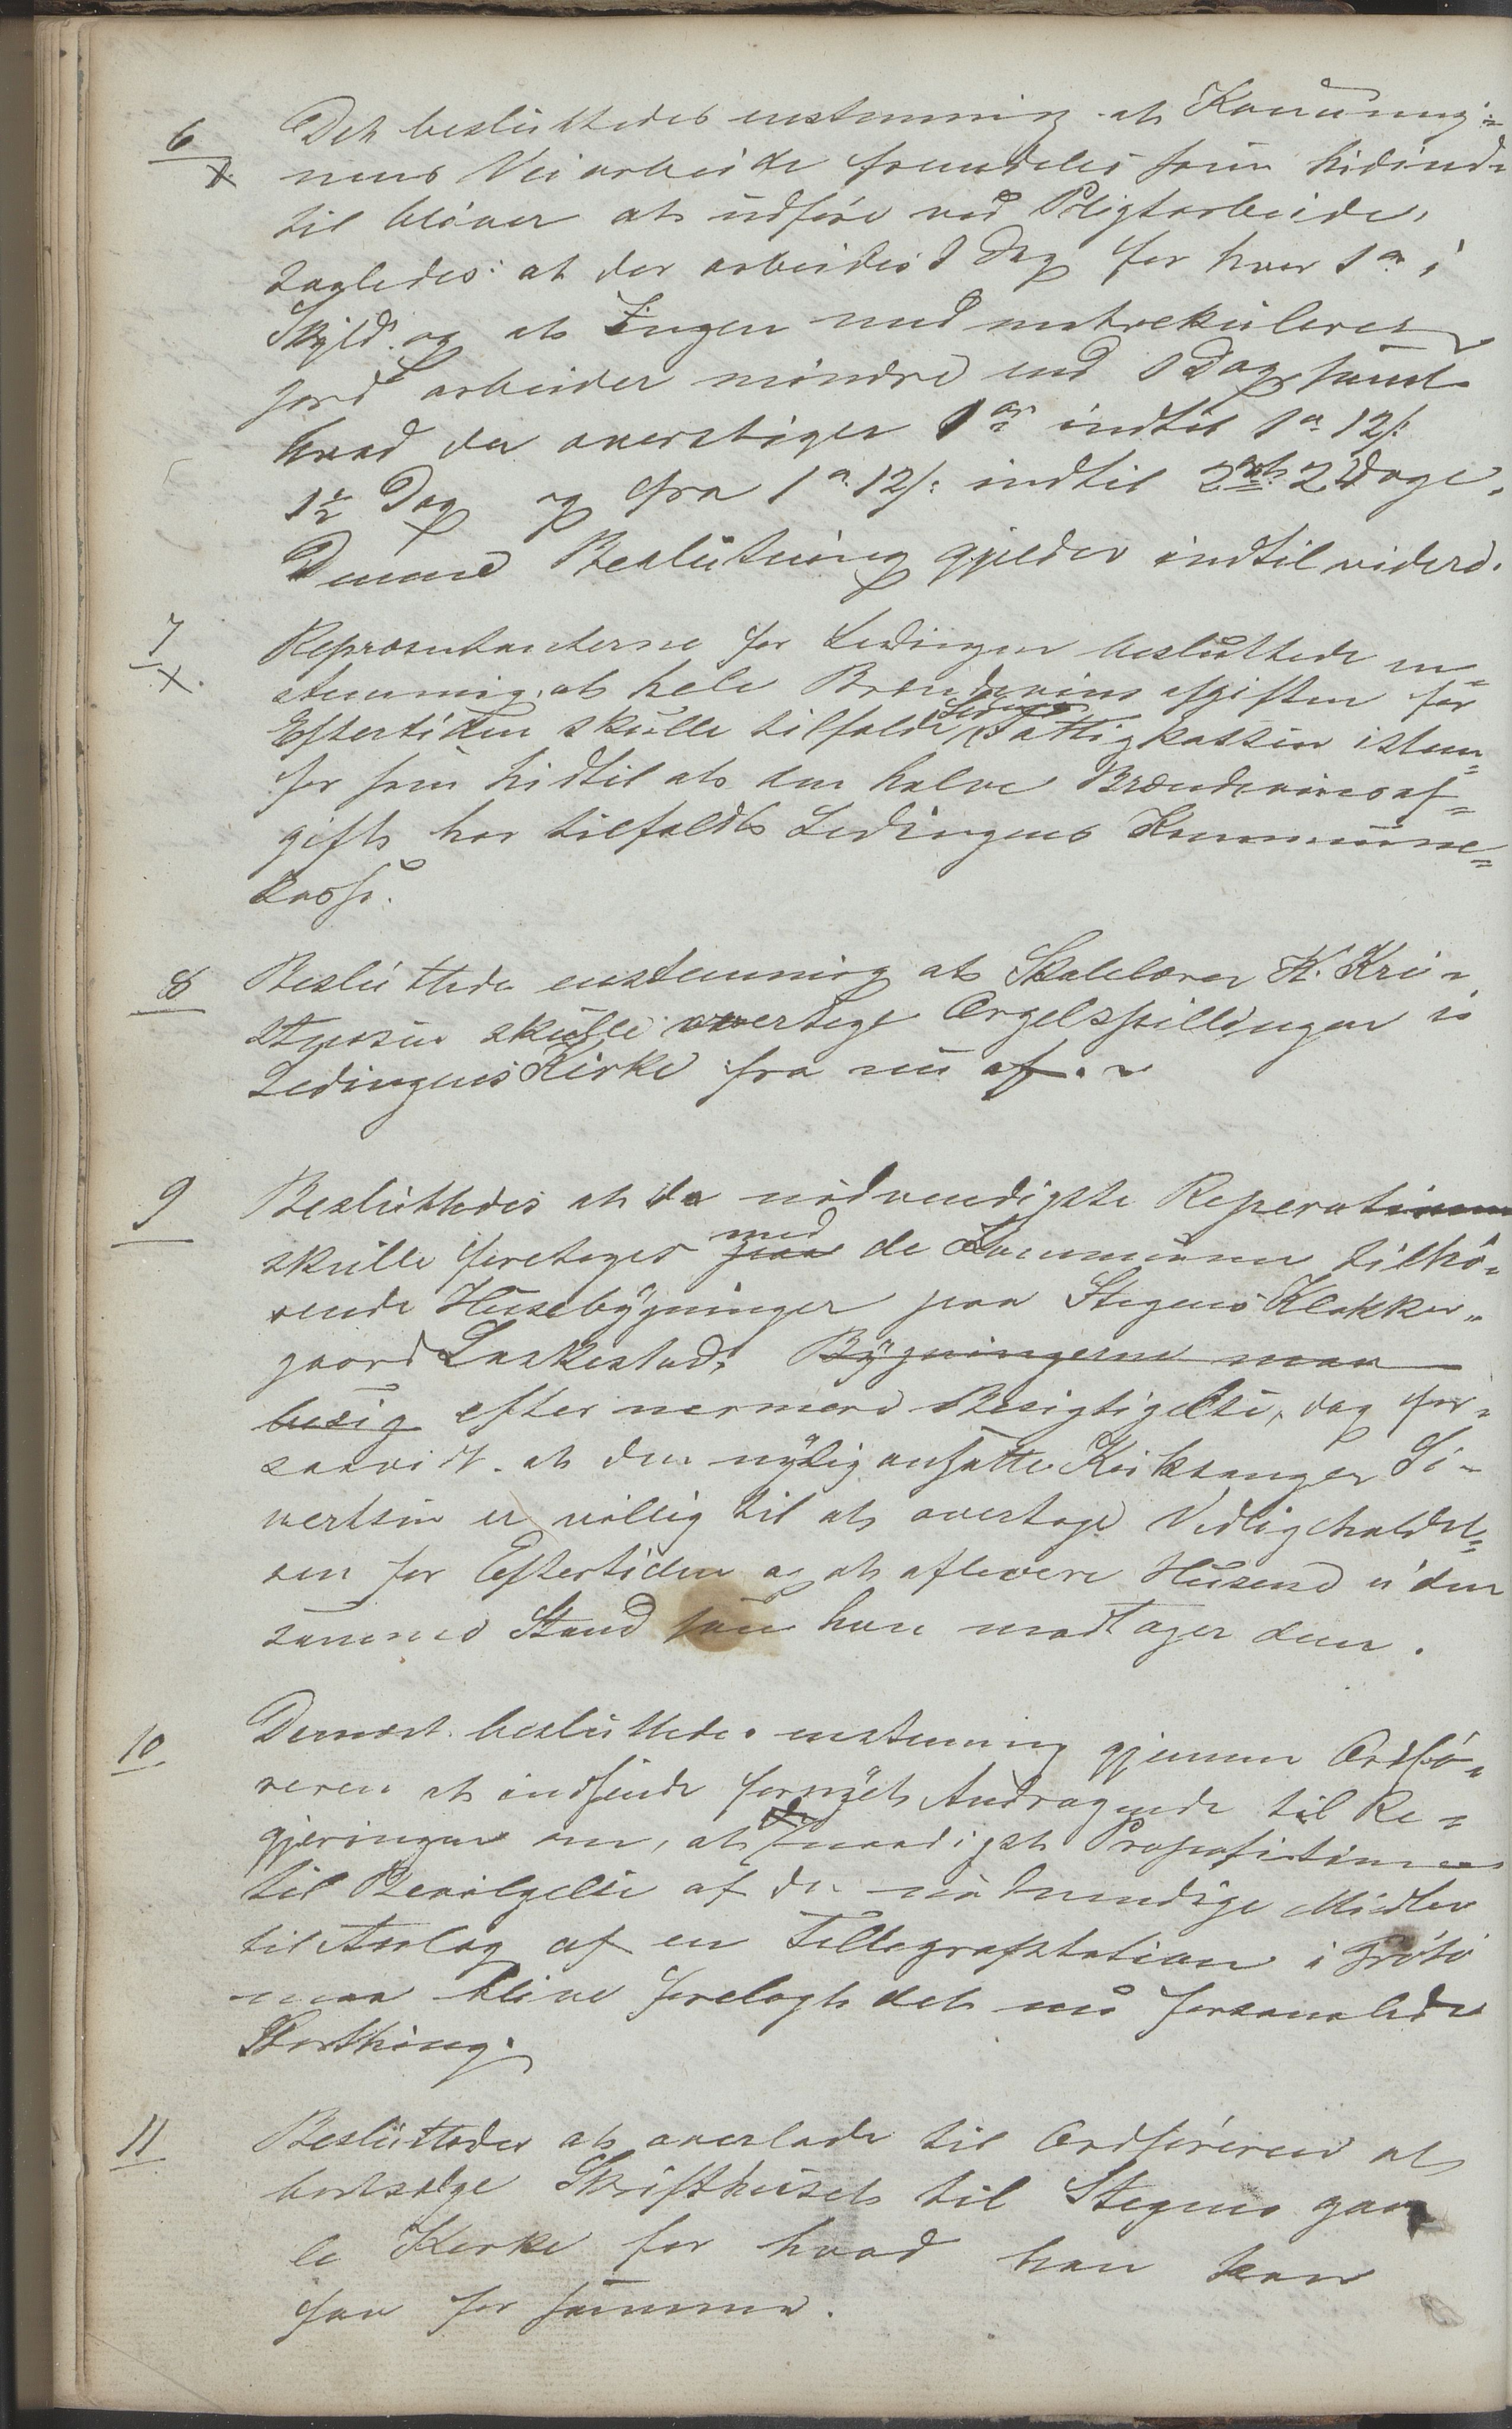 6 Det besluttedes enstemmig at Kommu=
x nens Veiarbeide fremdeles som hidind=
til bliver at udföre ved Pligtarbeide,
saaledes: at der arbeides 1 Dag for hver 1 ort i
Skyld og at Ingen med matrekuleret
jord arbeider mindre end 1 Dag samt
hvad der overstiger 1 ort indtil 1 ort 12 s:
1½ Dag og fra 1 ort 12 s: indtil 2 ort 2 Dage.
Denne Beslutning gjelder indtil videre.
7 Repræsentanterne for Ledingen besluttede en=
x. stemmig, at hele Brændevins afgiften for
Eftertiden skulle tilfalde Ledingens Fattigkassen isteden=
for som hidtil at den halve Brændevinsaf=
gift har tilfaldt Ledingens Kommune=
kasse.
8 Besluttede enstemmig at Skolelærer K. Kri=
stensen skulle overtage Orgelspillingen i
Ledingens Kirke fra nu af.
9 Besluttedes at de nödvendigste Reperationer
skulle foretages paa med de Kommunen tilhö=
rende Husebygninger paa Stegens Klokker=
gaard Laskestad. Bygningerne maa
besig efter nermere Besigtigelse, dog for=
saavidt at den nylig ansatte Kirksanger Si=
vertsen er villig til at overtage Vedligeholdel=
sen for Eftertiden og at aflevere Husene i den
samme Stand som han modtager dem.
10 Dernæst besluttedes enstemmig gjennem Ordfö=
reren at indsende fornyet Andragende til Re=
gjeringen om, at naadigst Proposition
til Bevilgelse af de nödvendige Midler
til Anlæg af en Tellegrafstation i Gröto
maa blive forelagt det nu forsamlede
Storthing.
11 Besluttedes at overlade til Ordföreren at
bortsælge Skrifthuset til Stegens gam
le Kirke for hvad han kan
faa for samme.